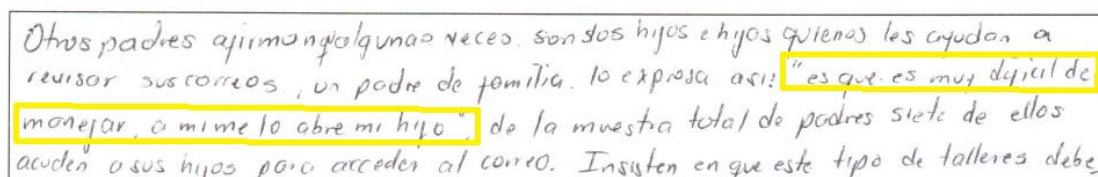 Otros padres afirman q algunas veces. son sus hijos e hijos quienes les ayudan a
revisar sus correos, un padre de familia. lo expresa asi: "es que es muy dificil de
manejar, a mi me lo abre mi hijo", de la muestra total de padres siete de ellos
acuden a sus hijos para acceder al correo. Insisten en que este tipo de talleres debe